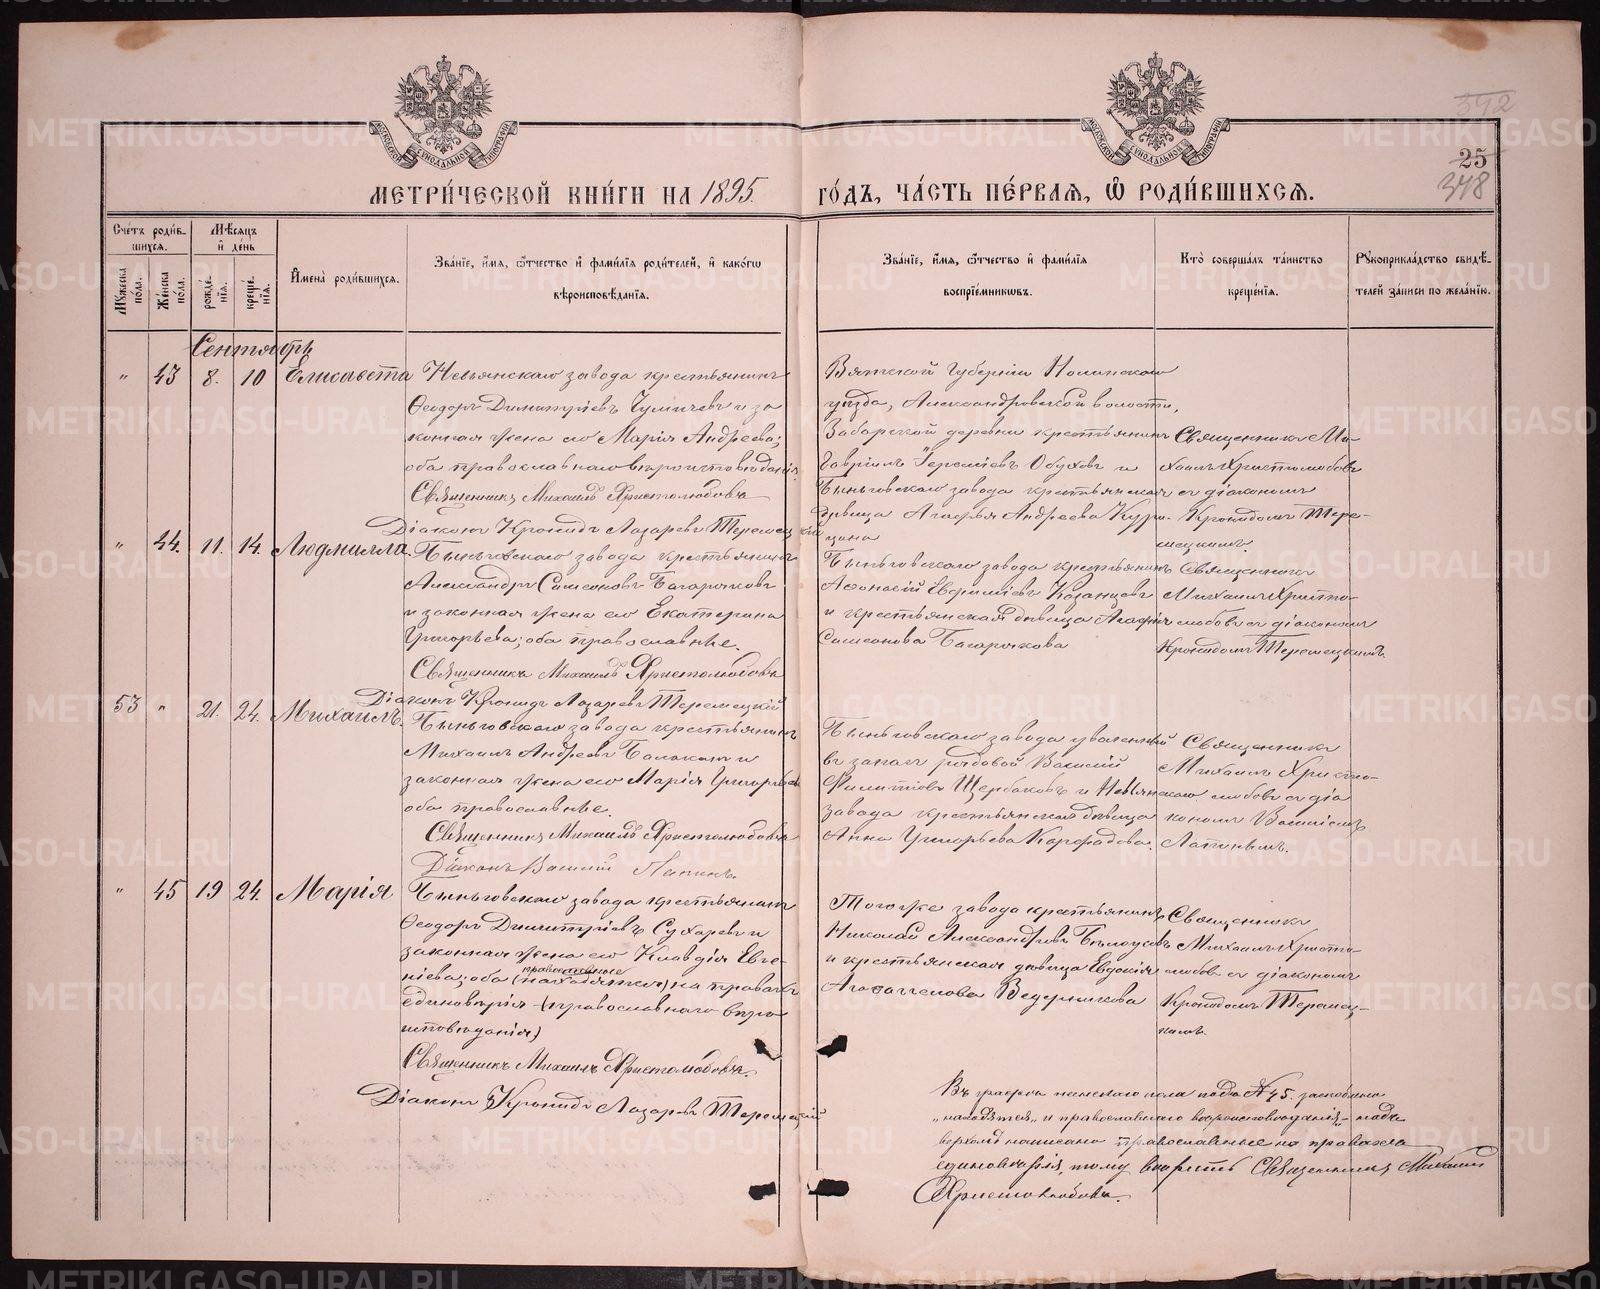 МЕТРИ́ЧЕСКОЙ КНИ́ГИ НА 1895 ГО́ДЪ, ЧА́СТЬ ПЕ́РВАЯ, Ѽ РОДИ́ВШИХСЯ.
392
25
378
Сче́тъ роди́в-
шихся.
Мѣ́сяцъ
и҆ де́нь
Мꙋ́жеска
по́ла.
Же́нска
по́ла.
рожде́-
нїя.
креще́-
нїя.
И҆мена̀ роди́вшихся.
Зва́нїе, и҆́мя, ѻ҆́тчество и҆ фами́лїя роди́телей, и҆ како́гѡ
вѣроисповѣ́данїя.
Зва́нїе, и҆́мя, ѻ҆́тчество и҆ фами́лїя
воспрїе́мникѡвъ.
Кто̀ соверша́лъ та́инство
креще́нїя.
Рꙋкоприкла́дство свидѣ́-
телей за́писи по жела́нїю.
Сентябрь
" 43 8. 10 Елисавета
Невьянскаго завода крестьянинъ
Ѳеодоръ Димитріевъ и за
конная жена его Марія Андреева;
оба православнаго вѣроисповѣданія.
Священникъ Михаилъ Христолюбовъ
Діаконъ Кронидъ Лазаревъ Теремецкій
Вятской Губерніи Нолинскаго
уѣзда, Александровской волости,
деревни крестьянинъ
Гавріилъ Іереміевъ Обуховъ и
Быньговскаго завода крестьянская
дѣвица Агафья Андреева Кури-
цина
Священникъ Ми-
хаилъ Христолюбовъ
съ діакономъ
Кронидомъ Тере-
мецкимъ.
" 44. 11. 14. Людмилла.
Быньговскаго завода крестьянинъ
Александръ Самсоновъ Багаряковъ
и законная жена его Екатерина
Григорьева; оба православные.
Священникъ Михаилъ Христолюбовъ
Діаконъ Кронидъ Лазаревъ Теремецкій
Быньговскаго завода крестьянинъ
Аѳонасій Евѳиміевъ Казанцевъ
и крестьянская дѣвица Агафія
Самсонова Багарякова
Священникъ
Михаилъ Христо-
любовъ съ діакономъ
Кронидомъ Теремецкимъ.
53 " 21. 24. Михаилъ.
Быньговскаго завода крестьянинъ
Михаилъ Андреевъ Балакинъ и
законная жена его Марія Григорьева
оба православные.
Священникъ Михаилъ Христолюбовъ
Діаконъ Василій Лапинъ.
Быньговскаго завода уволенный
въ запасъ рядовой Василій
Филипповъ Щербаковъ и Невьянскаго
завода крестьянская дѣвица
Анна Григорьева
Священникъ
Михаилъ Христо-
любовъ съ діа
кономъ Василіемъ
Лапинымъ.
" 45 19 24. Марія
Быньговскаго завода крестьянинъ
Ѳеодоръ Димитріевъ Сухаревъ и
законная жена его Клавдія Евге-
ніева; оба православные (находятся) на правахъ
единовѣрія (православнаго вѣро
исповѣданія)
Священникъ Михаилъ Христолюбовъ.
Діаконъ Кронидъ Лазаревъ Теремецкій
Того же завода крестьянинъ
Николай Александровъ Бѣлоусовъ
и крестьянская дѣвица Евдокія
Агафангелова Ведерникова
Священникъ
Михаилъ Христо-
любовъ съ діакономъ
Кронидомъ Теремец-
кимъ.
Въ графѣ женскаго пола подъ №45.
"находятся" и православнаго вѣроисповѣданія - надъ
верхомъ написано православные на правахъ
единовѣрія, тому вѣрить Священникъ Михаилъ
Христолюбовъ.
METRIKI.GASO-URAL.RU